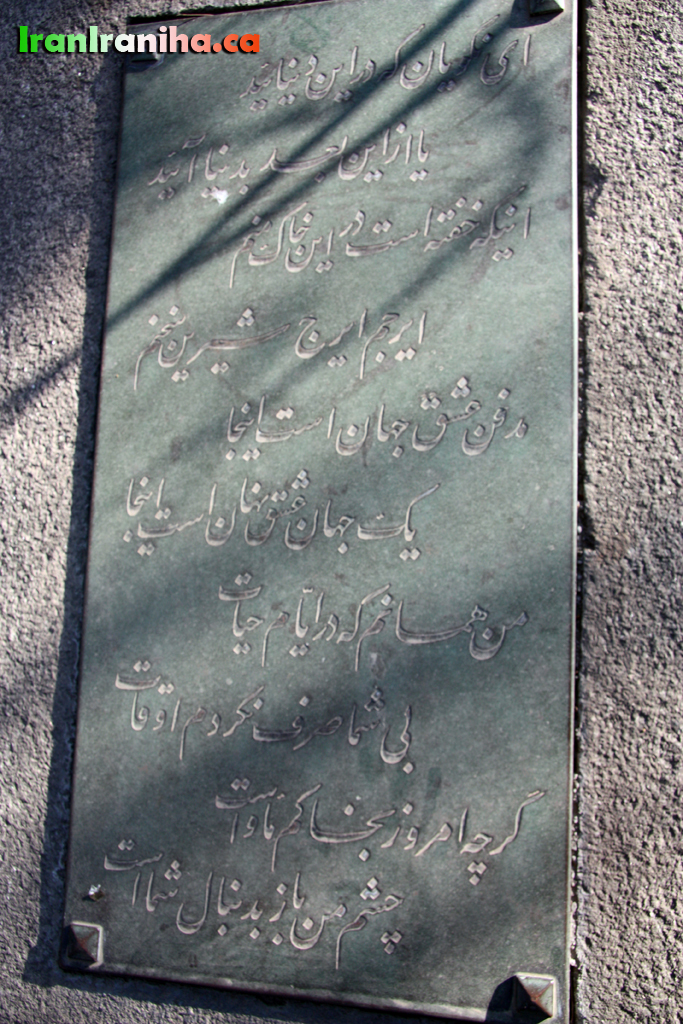 IranIraniha.ca
ای نکویان که در این دنیائید
یا از این بعد بدنیا آئید
اینکه خفته است در این خاک منم
ایرجم ایرج شیرین سخنم
مدفن عشق جهان است اینجا
یک جهان عشق نهان است اینجا
من همانم که در ایّام حیات
بی شما صرف نکردم اوقات
گرچه امروز بخاکم مأواست
چشم من باز بدنبال شما است